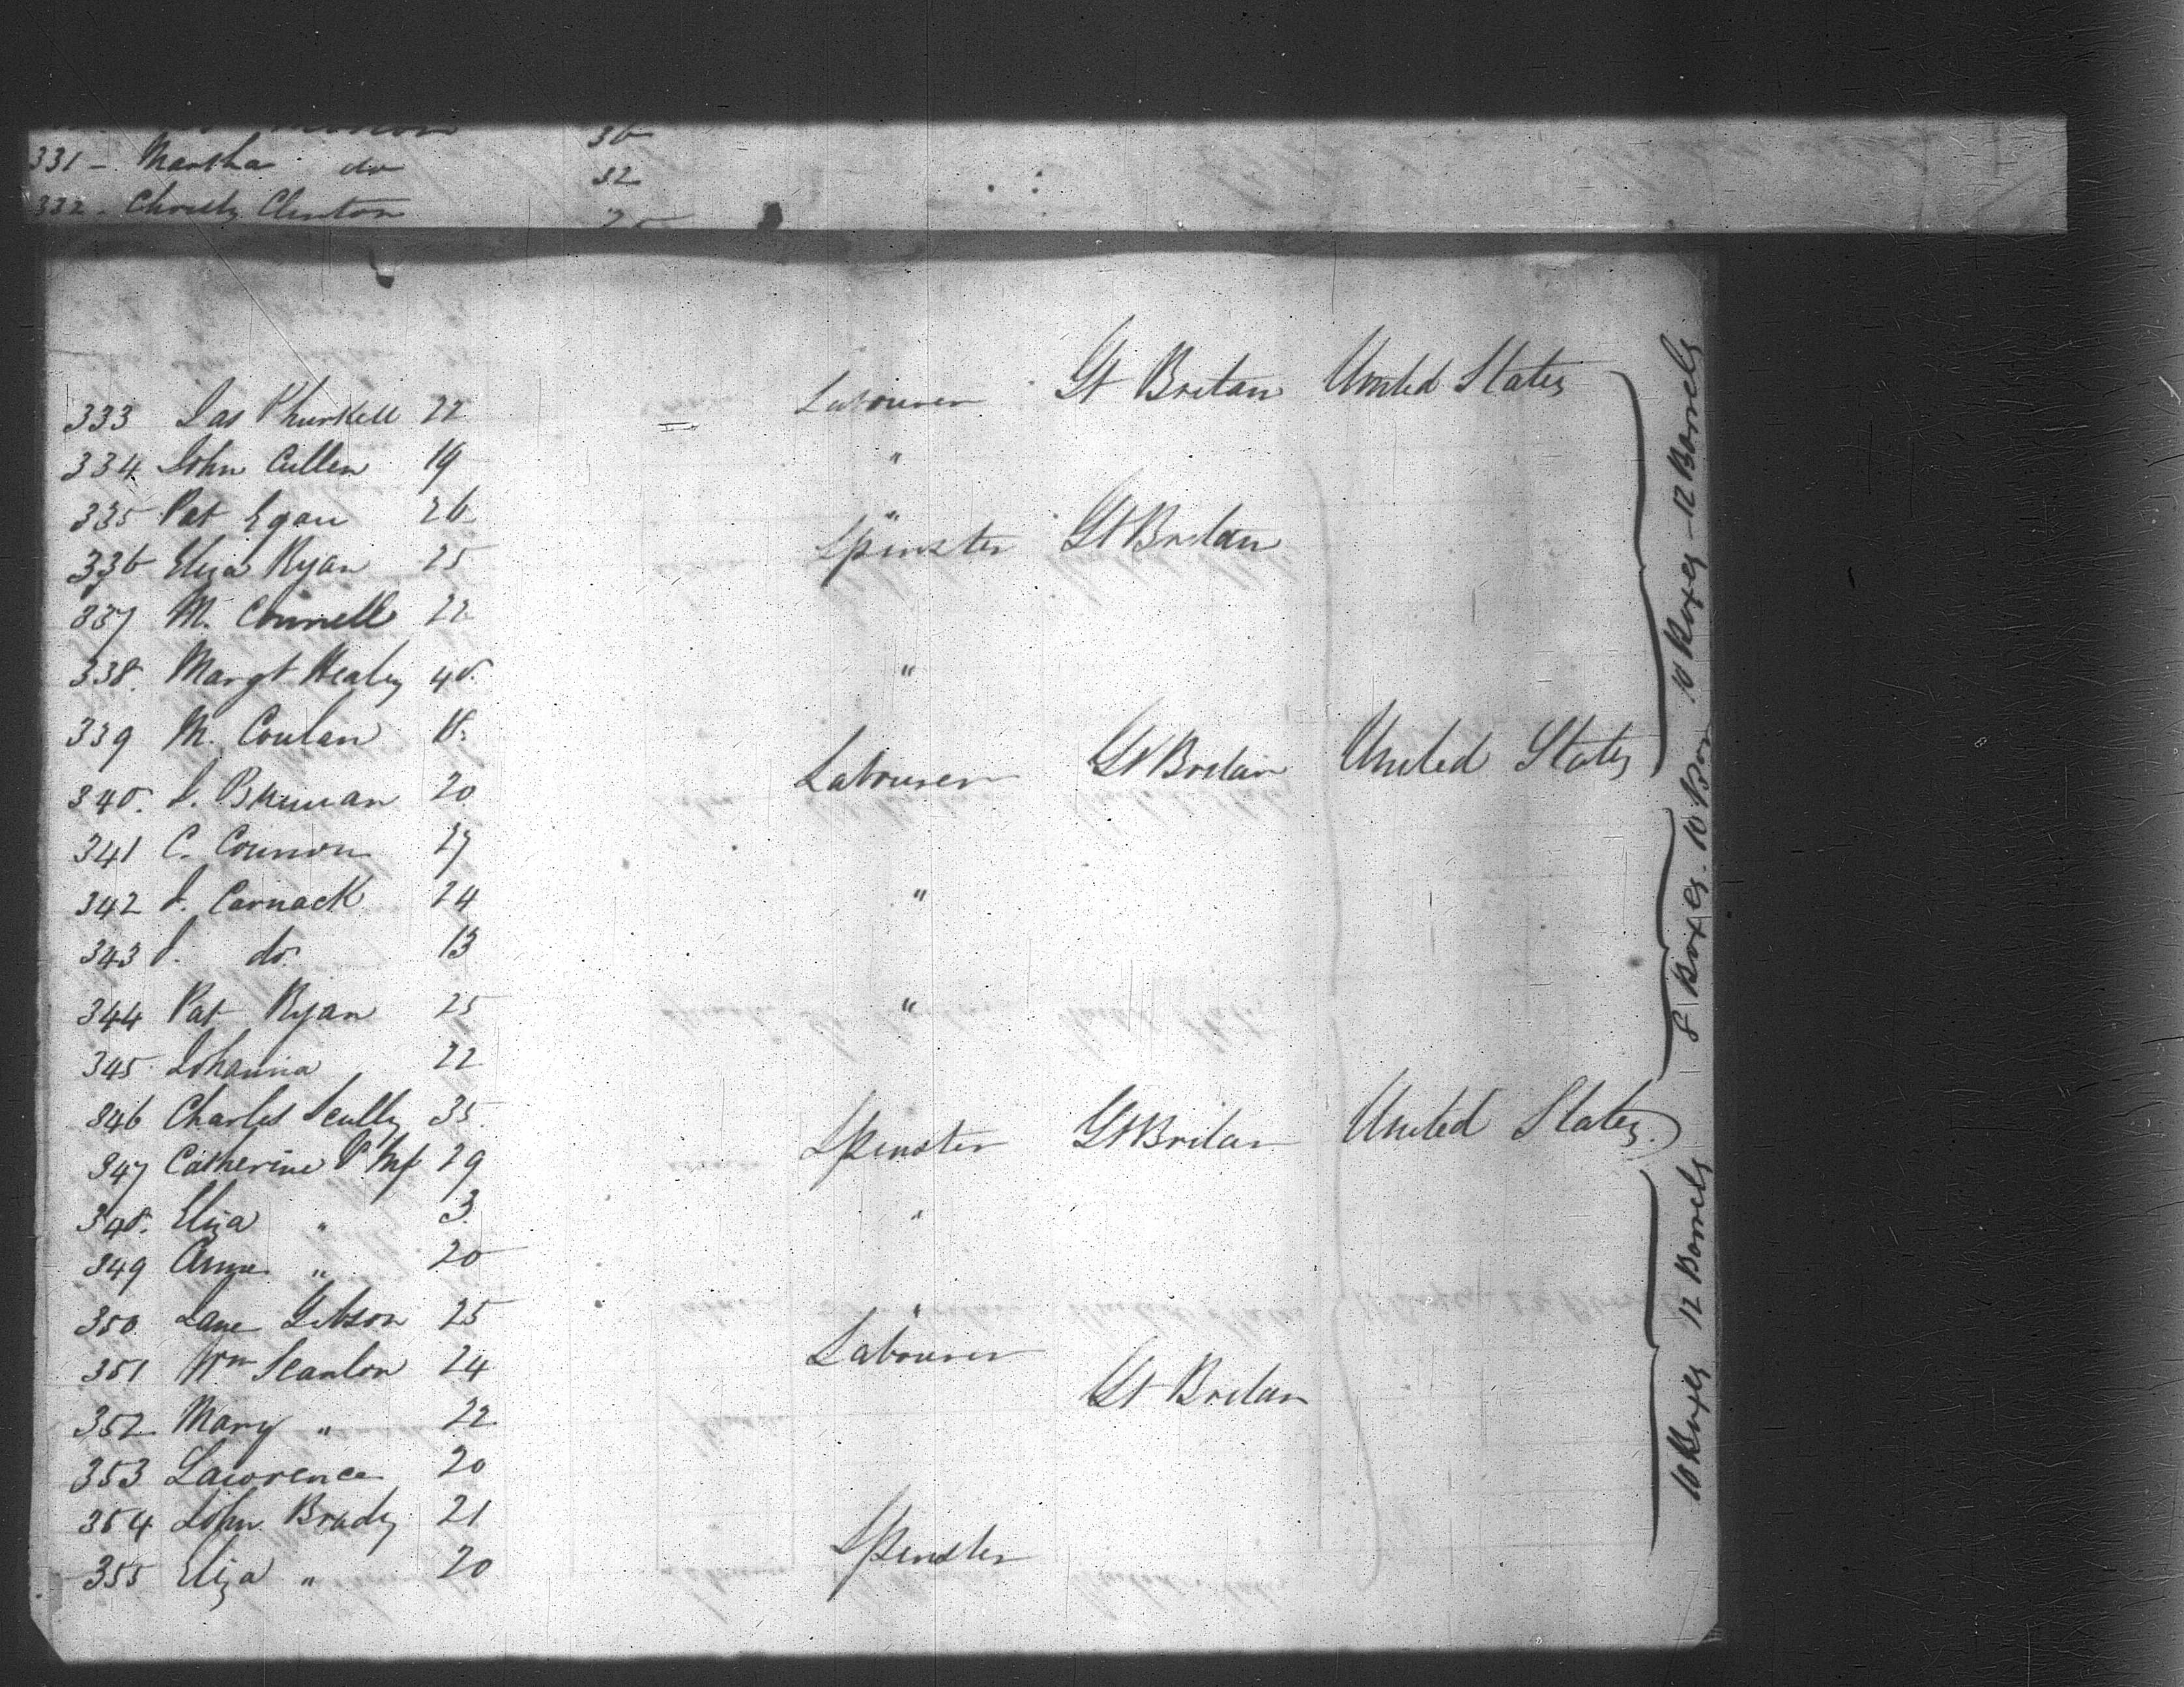 36
331 - Martha do 32
332 - Christy Clinton
333 Jas Thurkell 22 Labourer Gt Britan United States
334 John Cullen 19 "
335 Pat Egan 26 "
336 Eliza Ryan 25 Spinster Gt Britan
337 M. Connell 22
338. Margt Healey 40. "
339 M. Conlan 18.
340. J. Brennan 20 Labourer Gt Britain United States
341 C. Connon 27
342 J. Carnack 24 "
343 J. do. 13
344 Pat Ryan 25 "
345 Johanna 22
346 Charles Scully 35.
347 Catherine 29 Spinster Gt Britan United States.
348. Eliza " 3. "
349 Anne " 20
350 Jane Gibson 25 "
351 Wm Scanlon 24 Labourer
352 Mary " 22 Gt Britan
353 Lawrence 20
354 John Brady 21
355 Eliza " 20 Spinster
10 Boxes - 12 Barrels
8 Boxes. 10 Barr
10 Boxes 12 Barrels